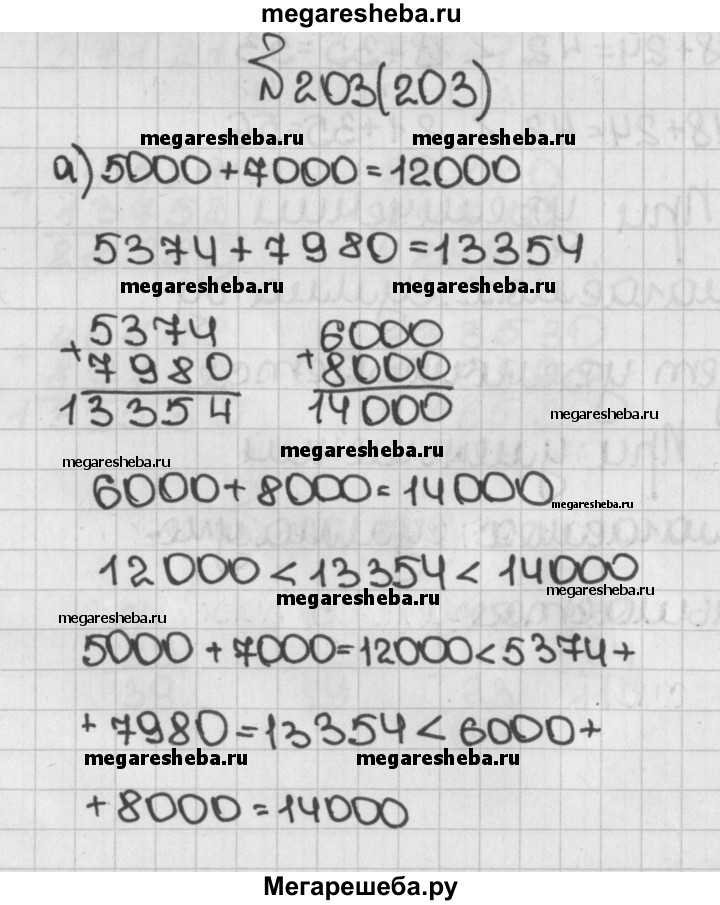 megaresheba.ru
№ 203(203)
megaresheba.ru megaresheba.ru
а) 5000 + 7000 = 12000
5374 + 7980 = 13354
megaresheba.ru megaresheba.ru
5374 6000
+ 7980 + 8000
13354 14000
megaresheba.ru
megaresheba.ru
megaresheba.ru
6000 + 8000 = 14000
megaresheba.ru
12000 < 13354 < 14000
megaresheba.ru
megaresheba.ru
5000 + 7000 = 12000 < 5374 +
+ 7980 = 13354 < 6000 +
megaresheba.ru megaresheba.ru
+ 8000 = 14000
Мегарешеба.ру